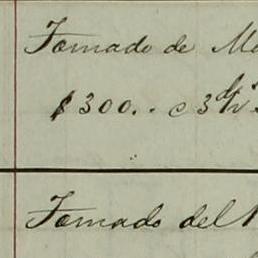 Tomado de Mo
$300.. c 3
Tomado del